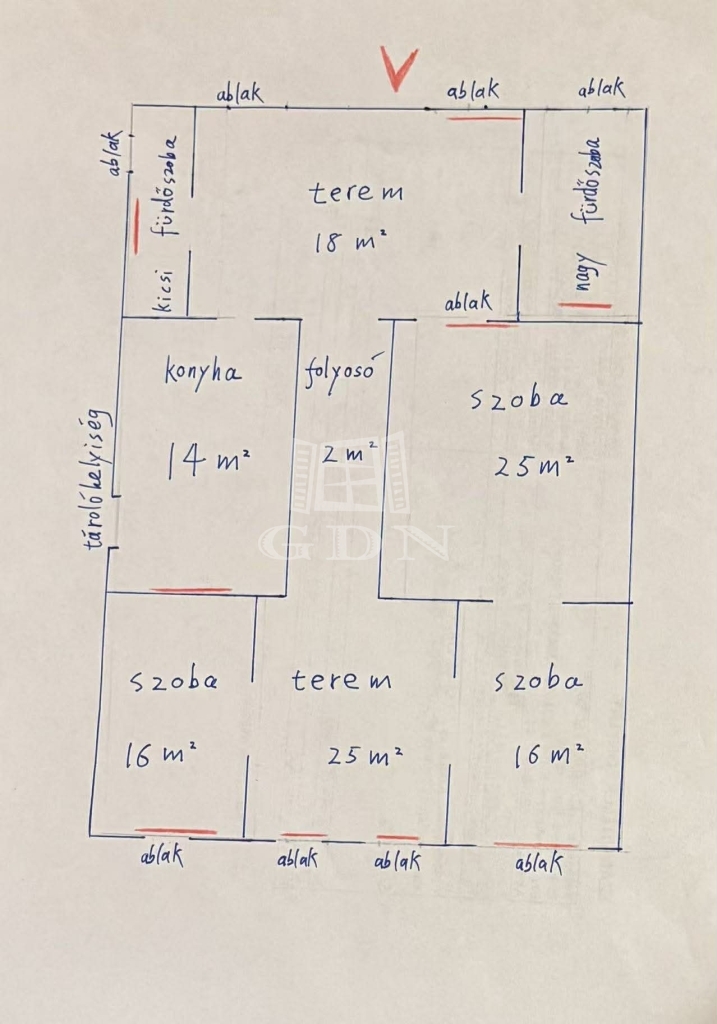 ablak
ablak
ablak
ablak
kicsi fürdőszoba
terem
18 m²
nagy fürdőszoba
ablak
konyha
14 m²
folyosó
2 m²
szoba
25 m²
tárolóhelyiség
GDN
szoba
16 m²
terem
25 m²
szoba
16 m²
ablak
ablak
ablak
ablak